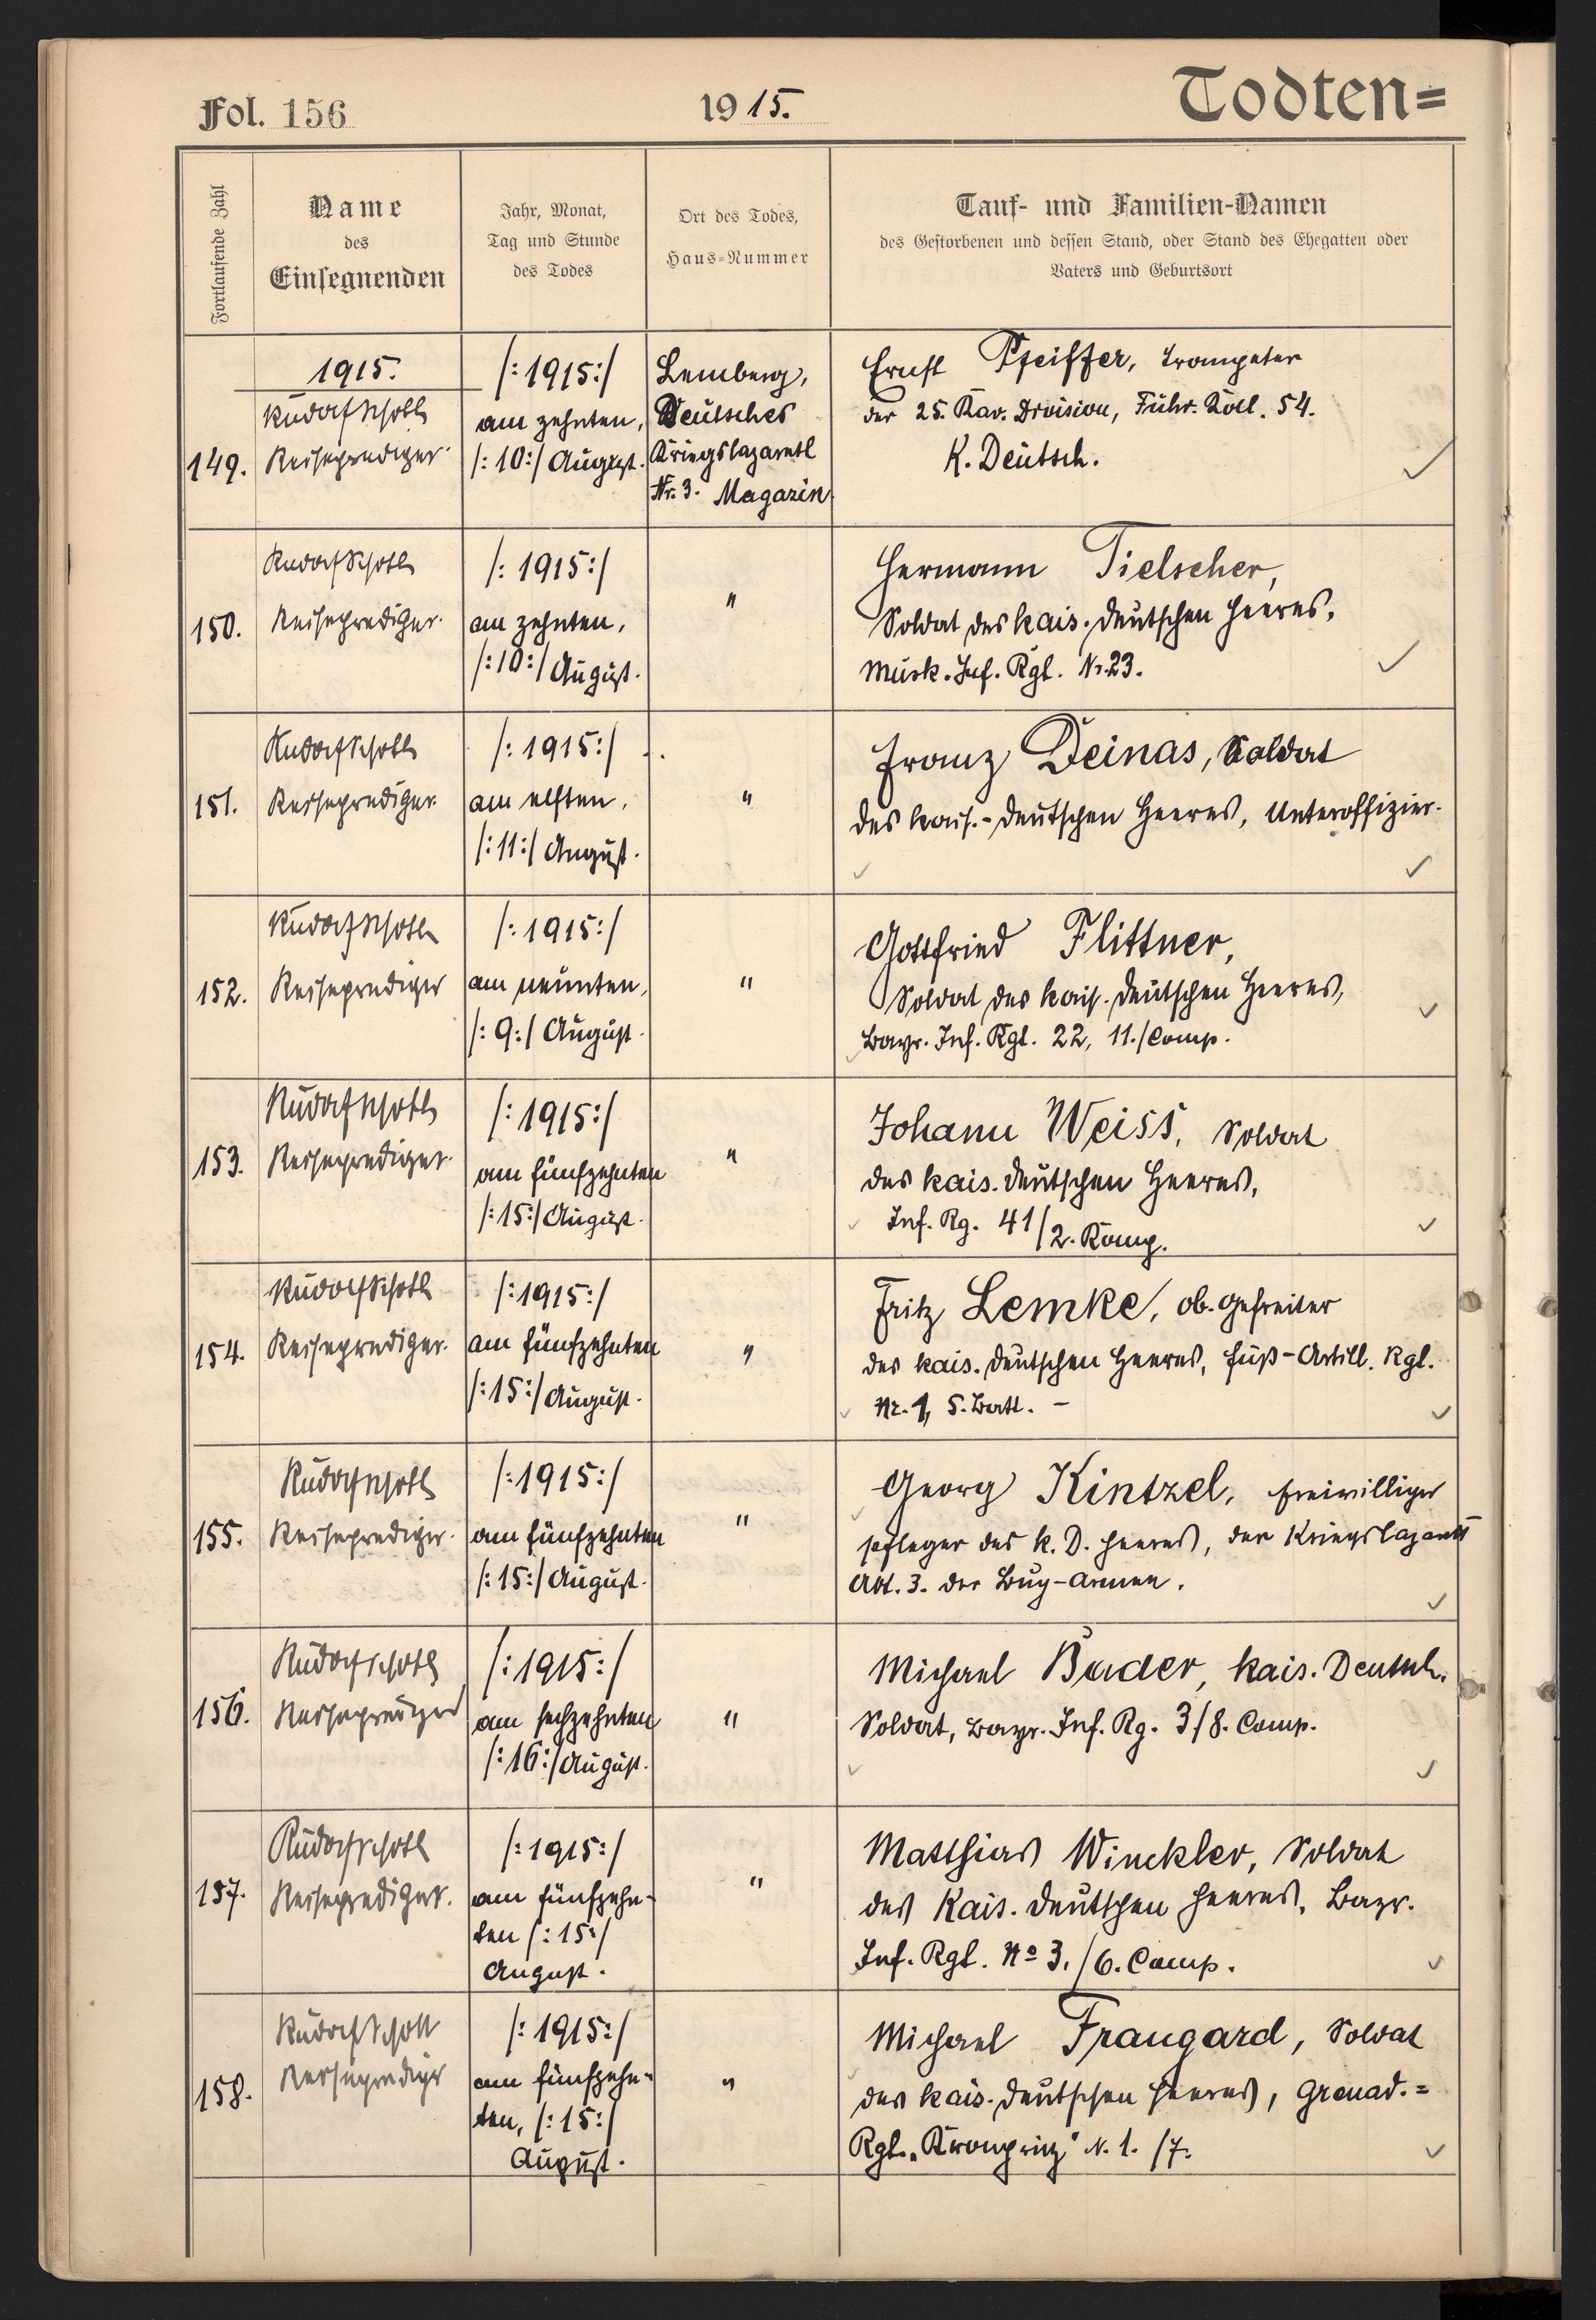 Fol. 156
1915.
Todten=
Fortlaufende Zahl
Name
des
Einsegnenden
Jahr, Monat,
Tag und Stunde
des Todes
Ort des Todes,
Haus-Nummer
Tauf- und Familien-Namen
des Gestorbenen und dessen Stand, oder Stand des Ehegatten oder
Vaters und Geburtsort
149.
1915.
Rudolf
Reiseprediger.
/:1915:/
am zehnten,
/:10:/ August.
Lemberg,
Deutsches
Kriegslazarett
Nr. 3. Magazin
Ernst Pfeiffer, Trompeter
der 25. Kav. Division, Führ. 54.
K. Deutsch.
150.
Rudolf
Reiseprediger.
/:1915:/
am zehnten,
/:10:/ August.
"
Hermann Tielscher,
Soldat des kais. deutschen Heeres,
Musk. Inf. Rgt. Nr. 23.
151.
Rudolf
Reiseprediger.
/:1915:/
am elften,
/:11:/ August.
"
Franz Deinas, Soldat
des kais.-deutschen Heeres, Unteroffizier.
152.
Rudolf
Reiseprediger
/:1915:/
am neunten,
/:9:/ August.
"
Gottfried Flittner,
Soldat des kais. deutschen Heeres,
Bayr. Inf. Rgt. 22, 11./Comp.
153.
Rudolf
Reiseprediger.
/:1915:/
am fünfzehnten
/:15:/ August.
"
Johann Weiss, Soldat
des kais. deutschen Heeres,
Inf. Rg. 41/2. Komp.
154.
Rudolf
Reiseprediger.
/:1915:/
am fünfzehnten
/:15:/ August.
"
Fritz Lemke, ob. Gefreiter
des kais. deutschen Heeres, Fuß-Artill. Rgt.
Nr. 1, 5. Batt. -
155.
Rudolf
Reiseprediger.
/:1915:/
am fünfzehnten
/:15:/ August.
"
Georg Kintzel, freiwilliger
pfleger des K. D. Heeres, der Kriegslazarett
Abt. 3. der Bug-Armee.
156.
Rudolf
Reiseprediger
/:1915:/
am sechzehnten
/:16:/ August.
"
Michael Bader, kais. Deutsch.
Soldat, Bayr. Inf. Rg. 3/8. Comp.
157.
Rudolf
Reiseprediger.
/:1915:/
am fünfzehn-
ten /:15:/
August.
"
Matthias Winckler, Soldat
des Kais. deutschen Heeres, Bayr.
Inf. Rgt. No 3./6. Comp.
158.
Rudolf
Reiseprediger
/:1915:/
am fünfzehn-
ten, /:15:/
August.
"
Michael Fraugard, Soldat
des kais. deutschen Heeres, Grenad.=
Rgt. „Kronprinz" N. 1. /7.